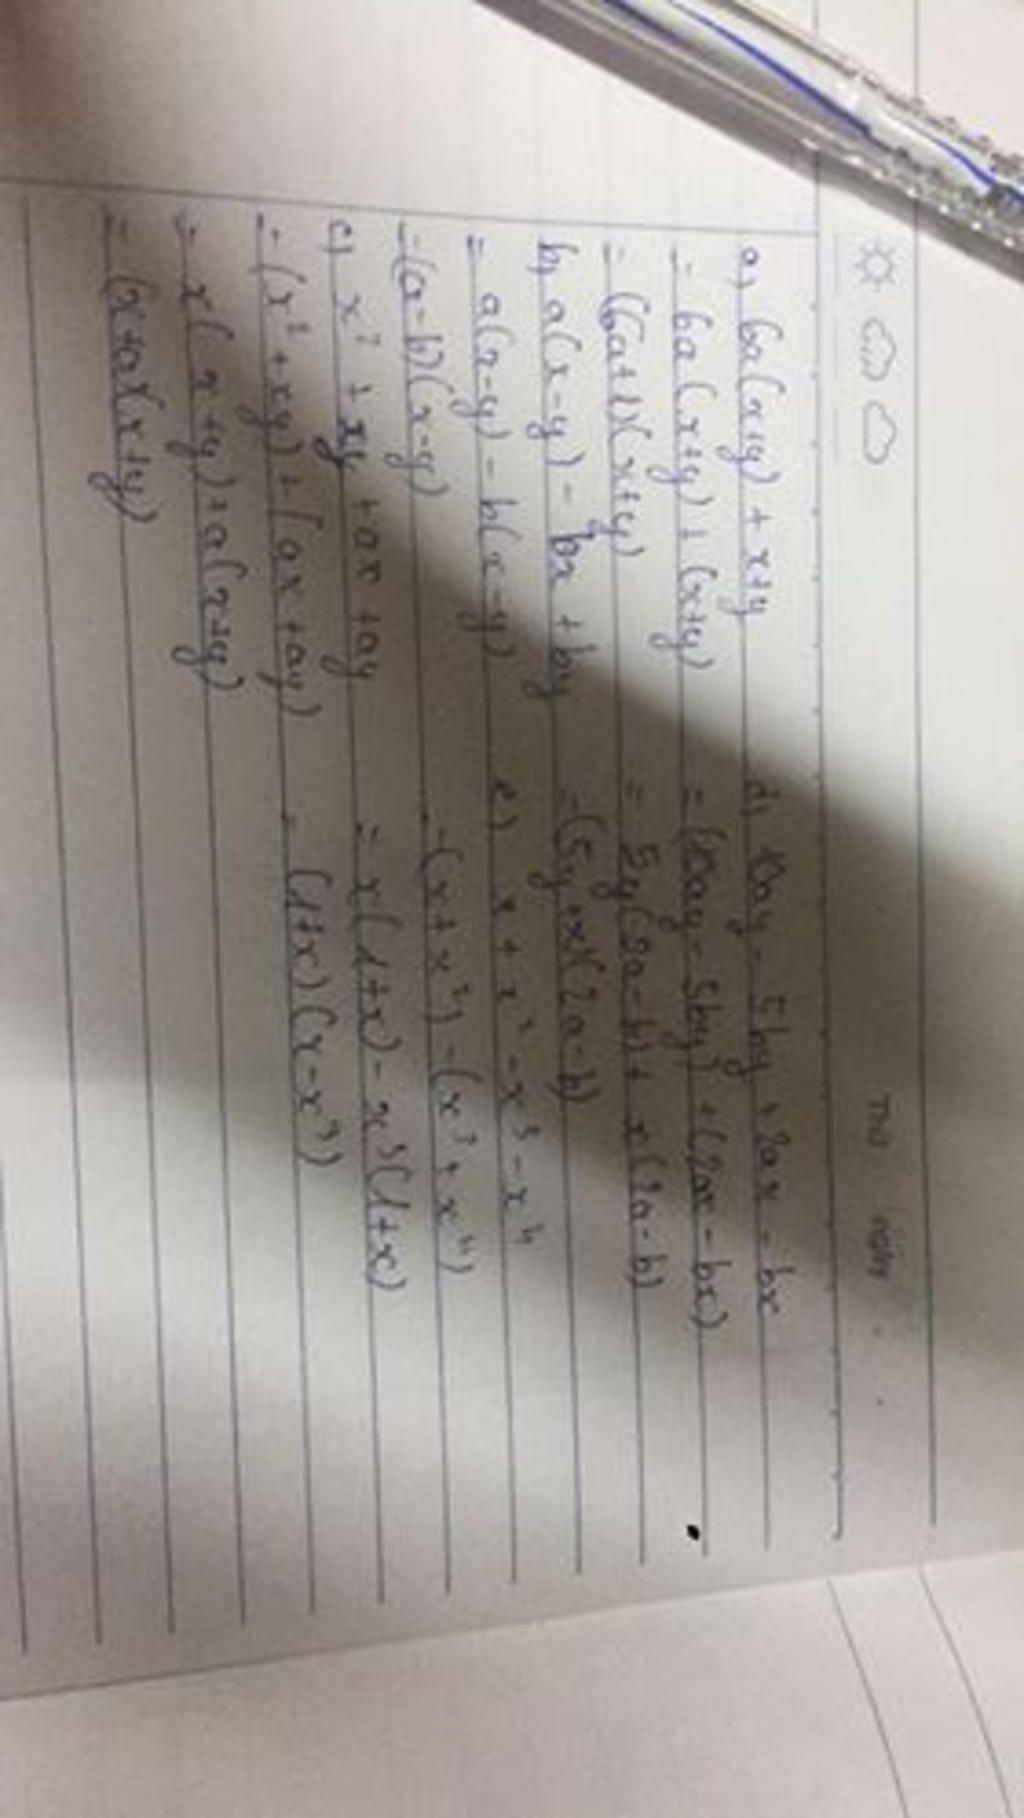 a) 6a(x+y) + x+y
= 6a(x+y) + (x+y)
= (6a+1)(x+y)
b) a(x-y) - bx + by
= a(x-y) - b(x-y)
= (a-b)(x-y)
c) x² + xy + ax + ay
= (x² + xy) + (ax + ay)
= x(x+y) + a(x+y)
= (x+a)(x+y)
d) 10ay - 5by + 2ax - bx
= (10ay - 5by) + (2ax - bx)
= 5y(2a-b) + x(2a-b)
= (5y+x)(2a-b)
e) x + x² - x³ - x⁴
= (x + x²) - (x³ + x⁴)
= x(1+x) - x³(1+x)
= (1+x)(x-x³)